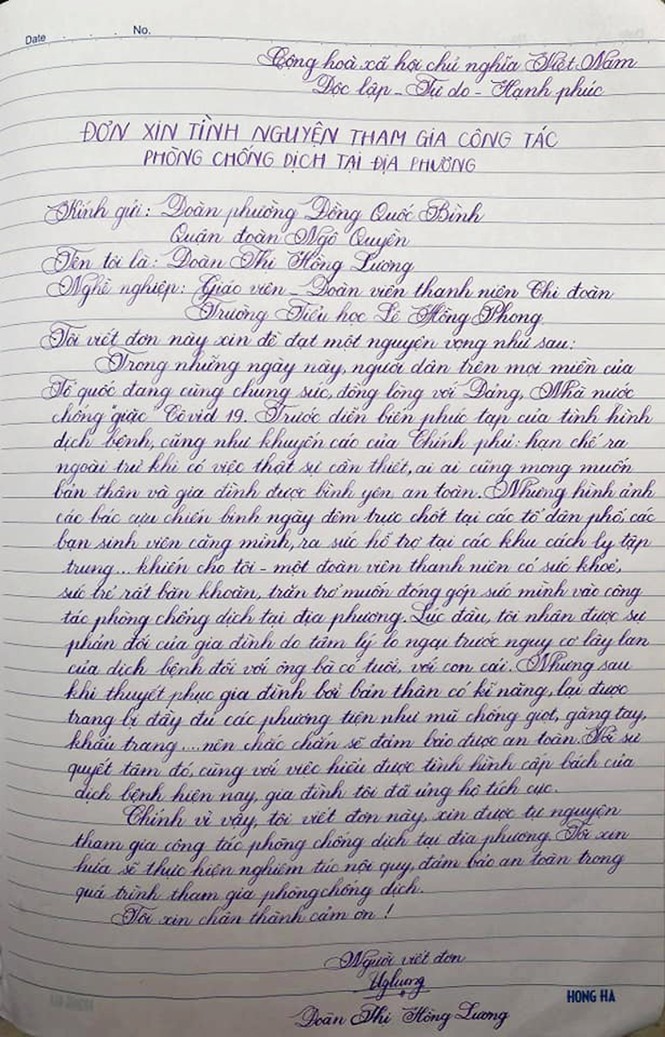 Date . . . . . No.
Cộng hoà xã hội chủ nghĩa Việt Nam
Độc lập - Tự do - Hạnh phúc
ĐƠN XIN TÌNH NGUYỆN THAM GIA CÔNG TÁC
PHÒNG CHỐNG DỊCH TẠI ĐỊA PHƯƠNG
Kính gửi: Đoàn phường Đồng Quốc Bình
Quận đoàn Ngô Quyền
Tên tôi là: Đoàn Thị Hồng Lương
Nghề nghiệp: Giáo viên - Đoàn viên thanh niên Chi đoàn
Trường Tiểu học Lê Hồng Phong
Tôi viết đơn này xin đề đạt một nguyện vọng như sau:
Trong những ngày này, người dân trên mọi miền của
Tổ quốc đang cùng chung sức, đồng lòng với Đảng, Nhà nước
chống "giặc" Covid 19. Trước diễn biến phức tạp của tình hình
dịch bệnh, cũng như khuyến cáo của Chính phủ: hạn chế ra
ngoài trừ khi có việc thật sự cần thiết, ai ai cũng mong muốn
bản thân và gia đình được bình yên an toàn. Nhưng hình ảnh
các bác cựu chiến binh ngày đêm trực chốt tại các tổ dân phố, các
bạn sinh viên căng mình, ra sức hỗ trợ tại các khu cách ly tập
trung... khiến cho tôi - một đoàn viên thanh niên có sức khoẻ,
sức trẻ rất băn khoăn, trăn trở muốn đóng góp sức mình vào công
tác phòng chống dịch tại địa phương. Lúc đầu, tôi nhận được sự
phản đối của gia đình do tâm lý lo ngại trước nguy cơ lây lan
của dịch bệnh đối với ông bà có tuổi, với con cái. Nhưng sau
khi thuyết phục gia đình bởi bản thân có kĩ năng, lại được
trang bị đầy đủ các phương tiện như mũ chống giọt, găng tay,
khẩu trang... nên chắc chắn sẽ đảm bảo được an toàn. Với sự
quyết tâm đó, cùng với việc hiểu được tình hình cấp bách của
dịch bệnh hiện nay, gia đình tôi đã ủng hộ tích cực.
Chính vì vậy, tôi viết đơn này, xin được tự nguyện
tham gia công tác phòng chống dịch tại địa phương. Tôi xin
hứa sẽ thực hiện nghiêm túc nội quy, đảm bảo an toàn trong
quá trình tham gia phòng chống dịch.
Tôi xin chân thành cảm ơn!
Người viết đơn
Đoàn Thị Hồng Lương
HONG HA